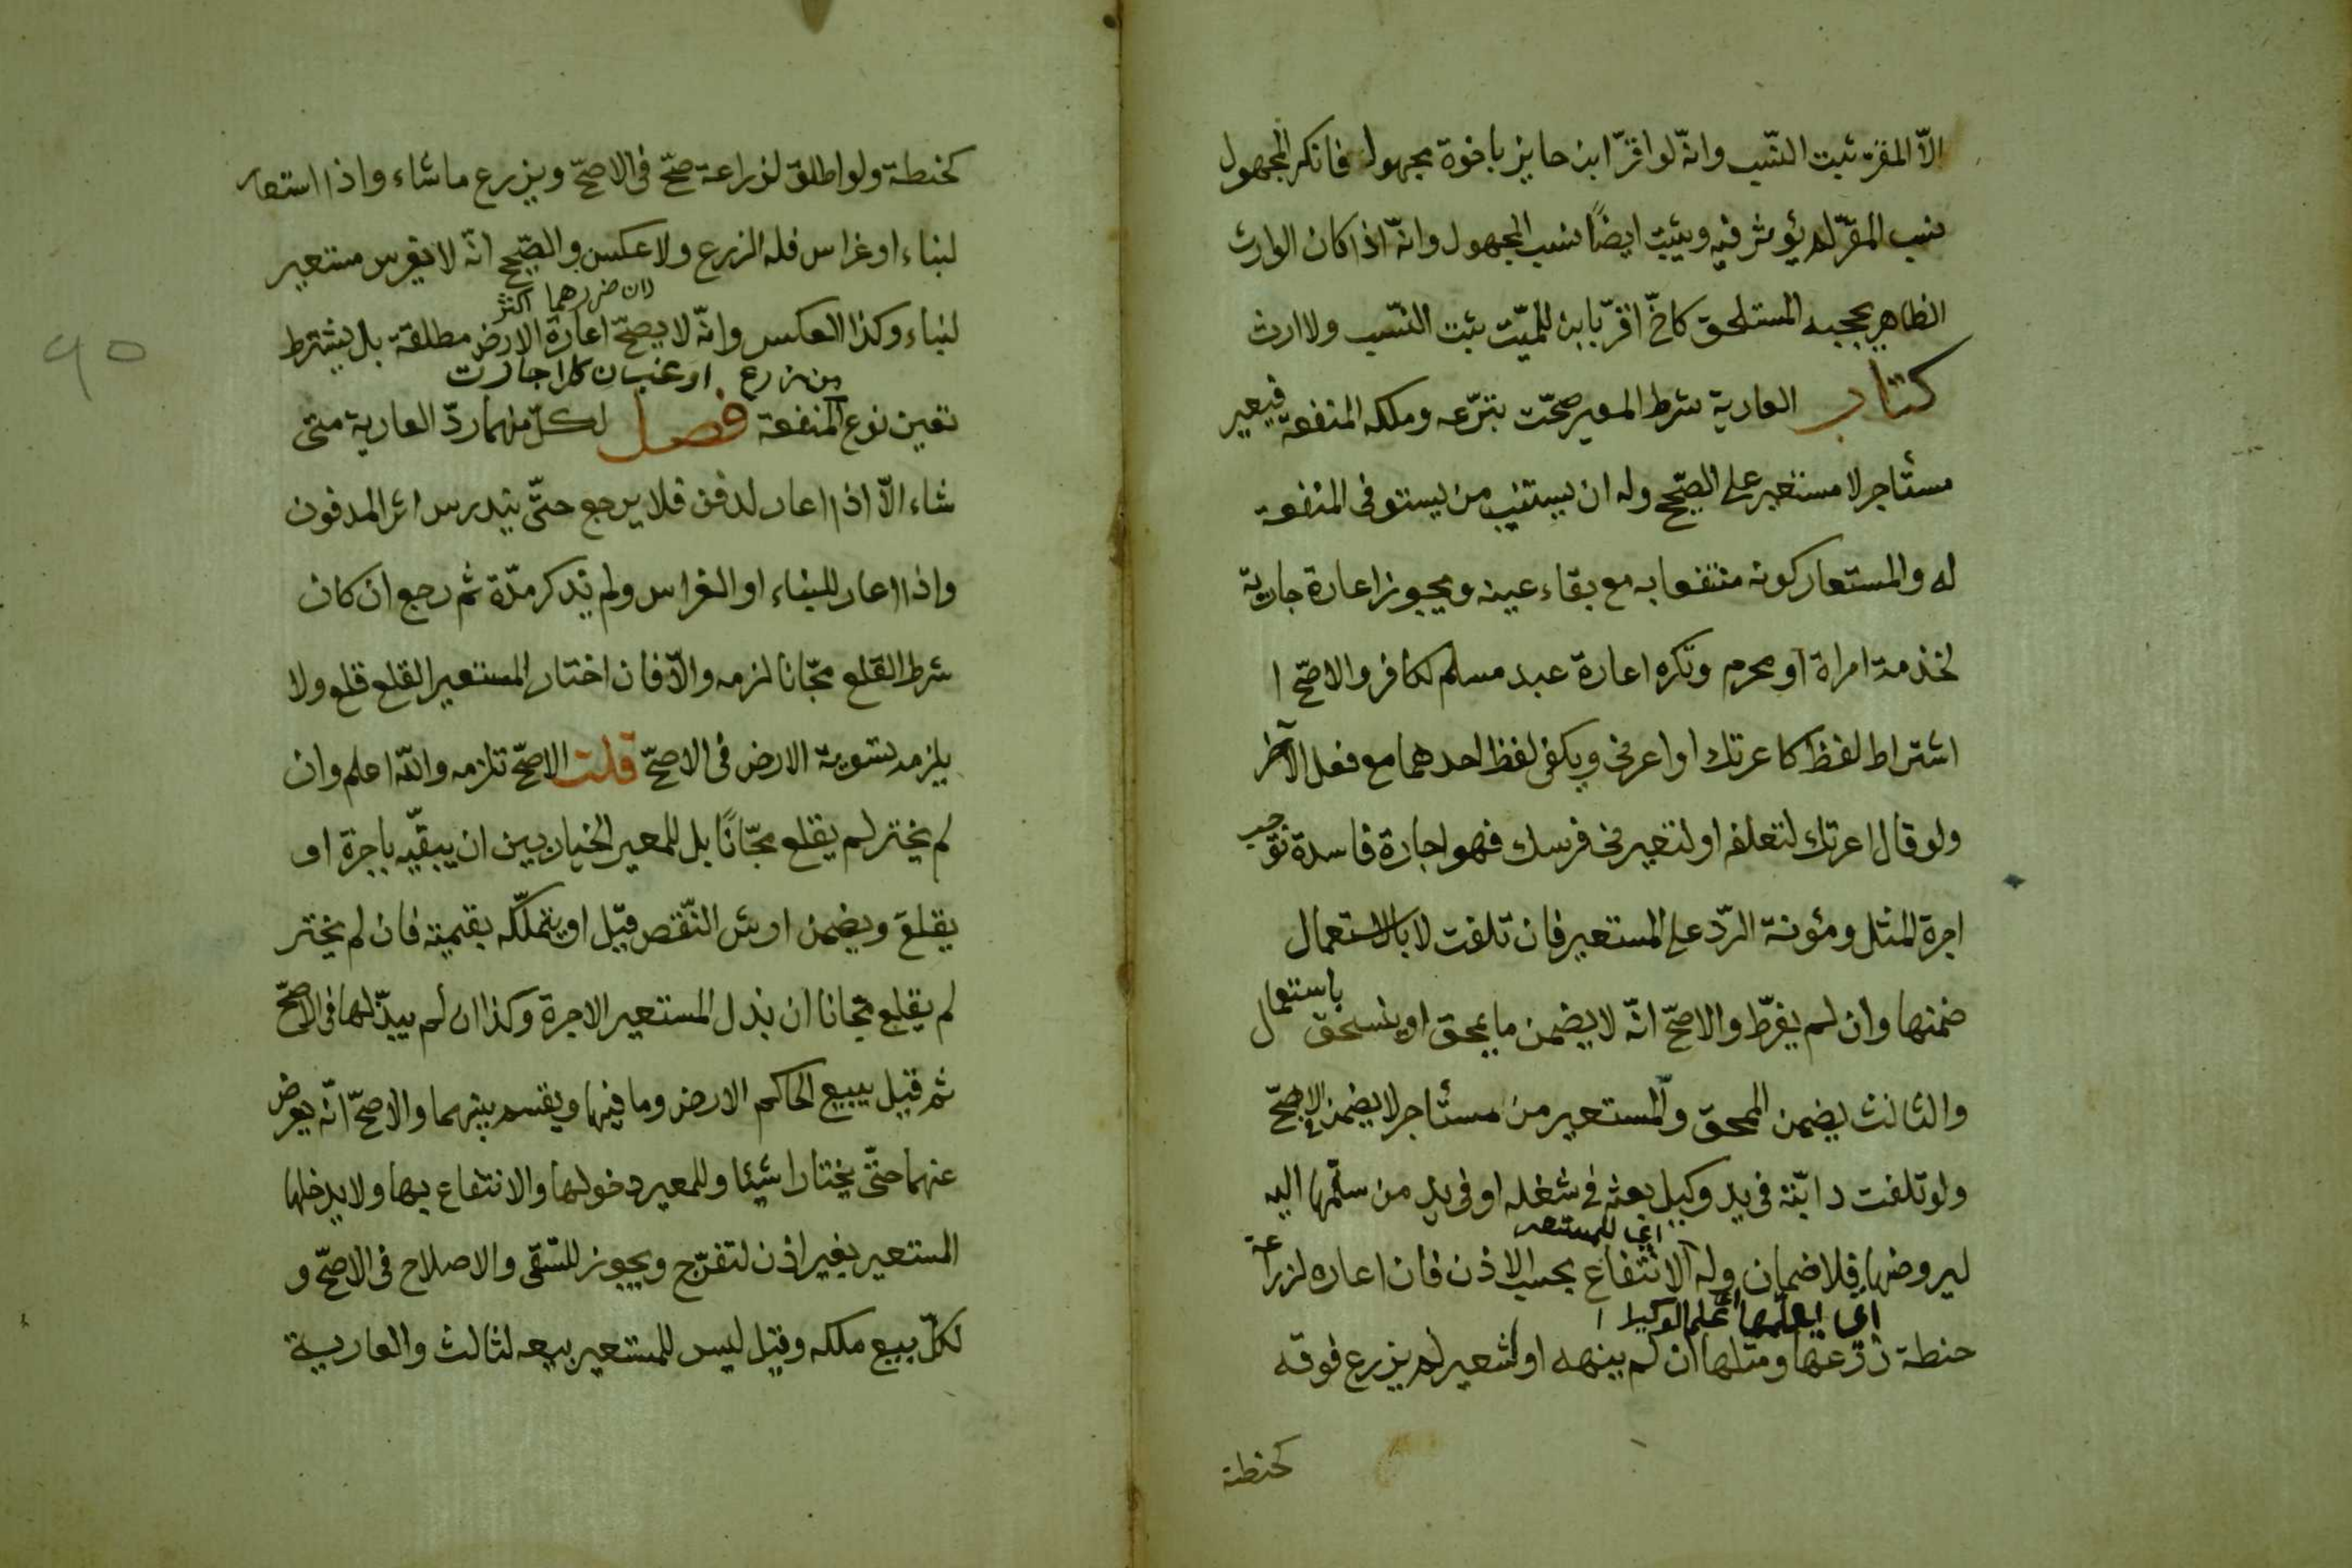 الاّ المقرّ ثبت النّسب وانّه لو اقرّ ابن حايز باخوة مجهول فانكر المجهول
نسب المقرّ لم يؤثر فيه ويثبت ايضًا نسب المجهول وانّه اذا كان الوارث
الظاهر يحجبه المستلحق كاخّ اقرّ بابن للميّت ثبت النّسب ولا ارث
كتاب العارية شرط المعير صحّت تبرّعه وملكه المنفعة فيعير
مستأجر لا مستعير على الصّحيح وله ان يستنيب من يستوفى المنفعة
له والمستعار كونه منتفعا به مع بقاء عينه ويجوز اعارة جارية
لخدمة امراة او محرم وتكره اعارة عبد مسلم لكافر والاصحّ ا
اشتراط لفظ كاعرتك او اعرنى ويكفى لفظ احدهما مع فعل الآخر
ولو قال اعرتك لتعلفه او لتعيرنى فرسك فهو اجارة فاسدة توجب
اجرة المثل ومؤنة الرّد على المستعير فان تلفت لا بالاستعمال
ضمنها وان لم يفرّط والاصحّ انّه لا يضمن ما ينمحق او ينسحق باستعمال
والثالث يضمن الممحق والمستعير من مستأجر لا يضمن الاصحّ
ولو تلفت دابّته فى يد وكيل بعثه فى شغله او فى يد من سلّمها اليه
اى للمستعير
ليروضها فلا ضمان وله الانتفاع بحسب الاذن فان اعاره لزراعة
حنطة زرعها ومثلها ان لم ينهه او لشعير لم يزرع فوقه
كحنطة
كحنطة ولو اطلق لزراعة صحّ فى الاصحّ ويزرع ما شاء واذا استعار
لبناء او غراس فله الزرع ولا عكس والصّحيح انّه لا يغرس مستعير
لان ضررهما اكثر
لبناء وكذا العكس وانّه لا يصحّ اعارة الارض مطلقة بل يشترط
من زرع او غيره
تعين نوع المنفعة فصل لكلّ منهما ردّ العارية متى
شاء الاّ اذا اعار لدفن فلا يرجع حتّى يندرس اثر المدفون
واذا اعار للبناء او الغراس ولم يذكر مدّة ثم رجع ان كان
شرط القلع مجّانا لزمه والاّ فان اختار المستعير القلع قلع ولا
يلزمه تسوية الارض فى الاصحّ قلت الاصحّ تلزمه والله اعلم وان
لم يختر لم يقلع مجّانًا بل للمعير الخيار بين ان يبقّيه باجرة او
يقلع ويضمن ارش النّقص قيل او يتملّكه بقيمته فان لم يختر
لم يقلع مجانا ان بذل المستعير الاجرة وكذا ان لم يبذّلها فى الاصحّ
ثم قيل يبيع الحاكم الارض وما فيها ويقسم بينهما والاصحّ انّه يعرض
عنهما حتّى يختارا شيئا وللمعير دخولها والانتفاع بها ولا يدخلها
المستعير بغير اذن لتفرّج ويجوز للسّقى والاصلاح فى الاصحّ و
لكلّ بيع ملكه وقيل ليس للمستعير بيعه لثالث والعارية